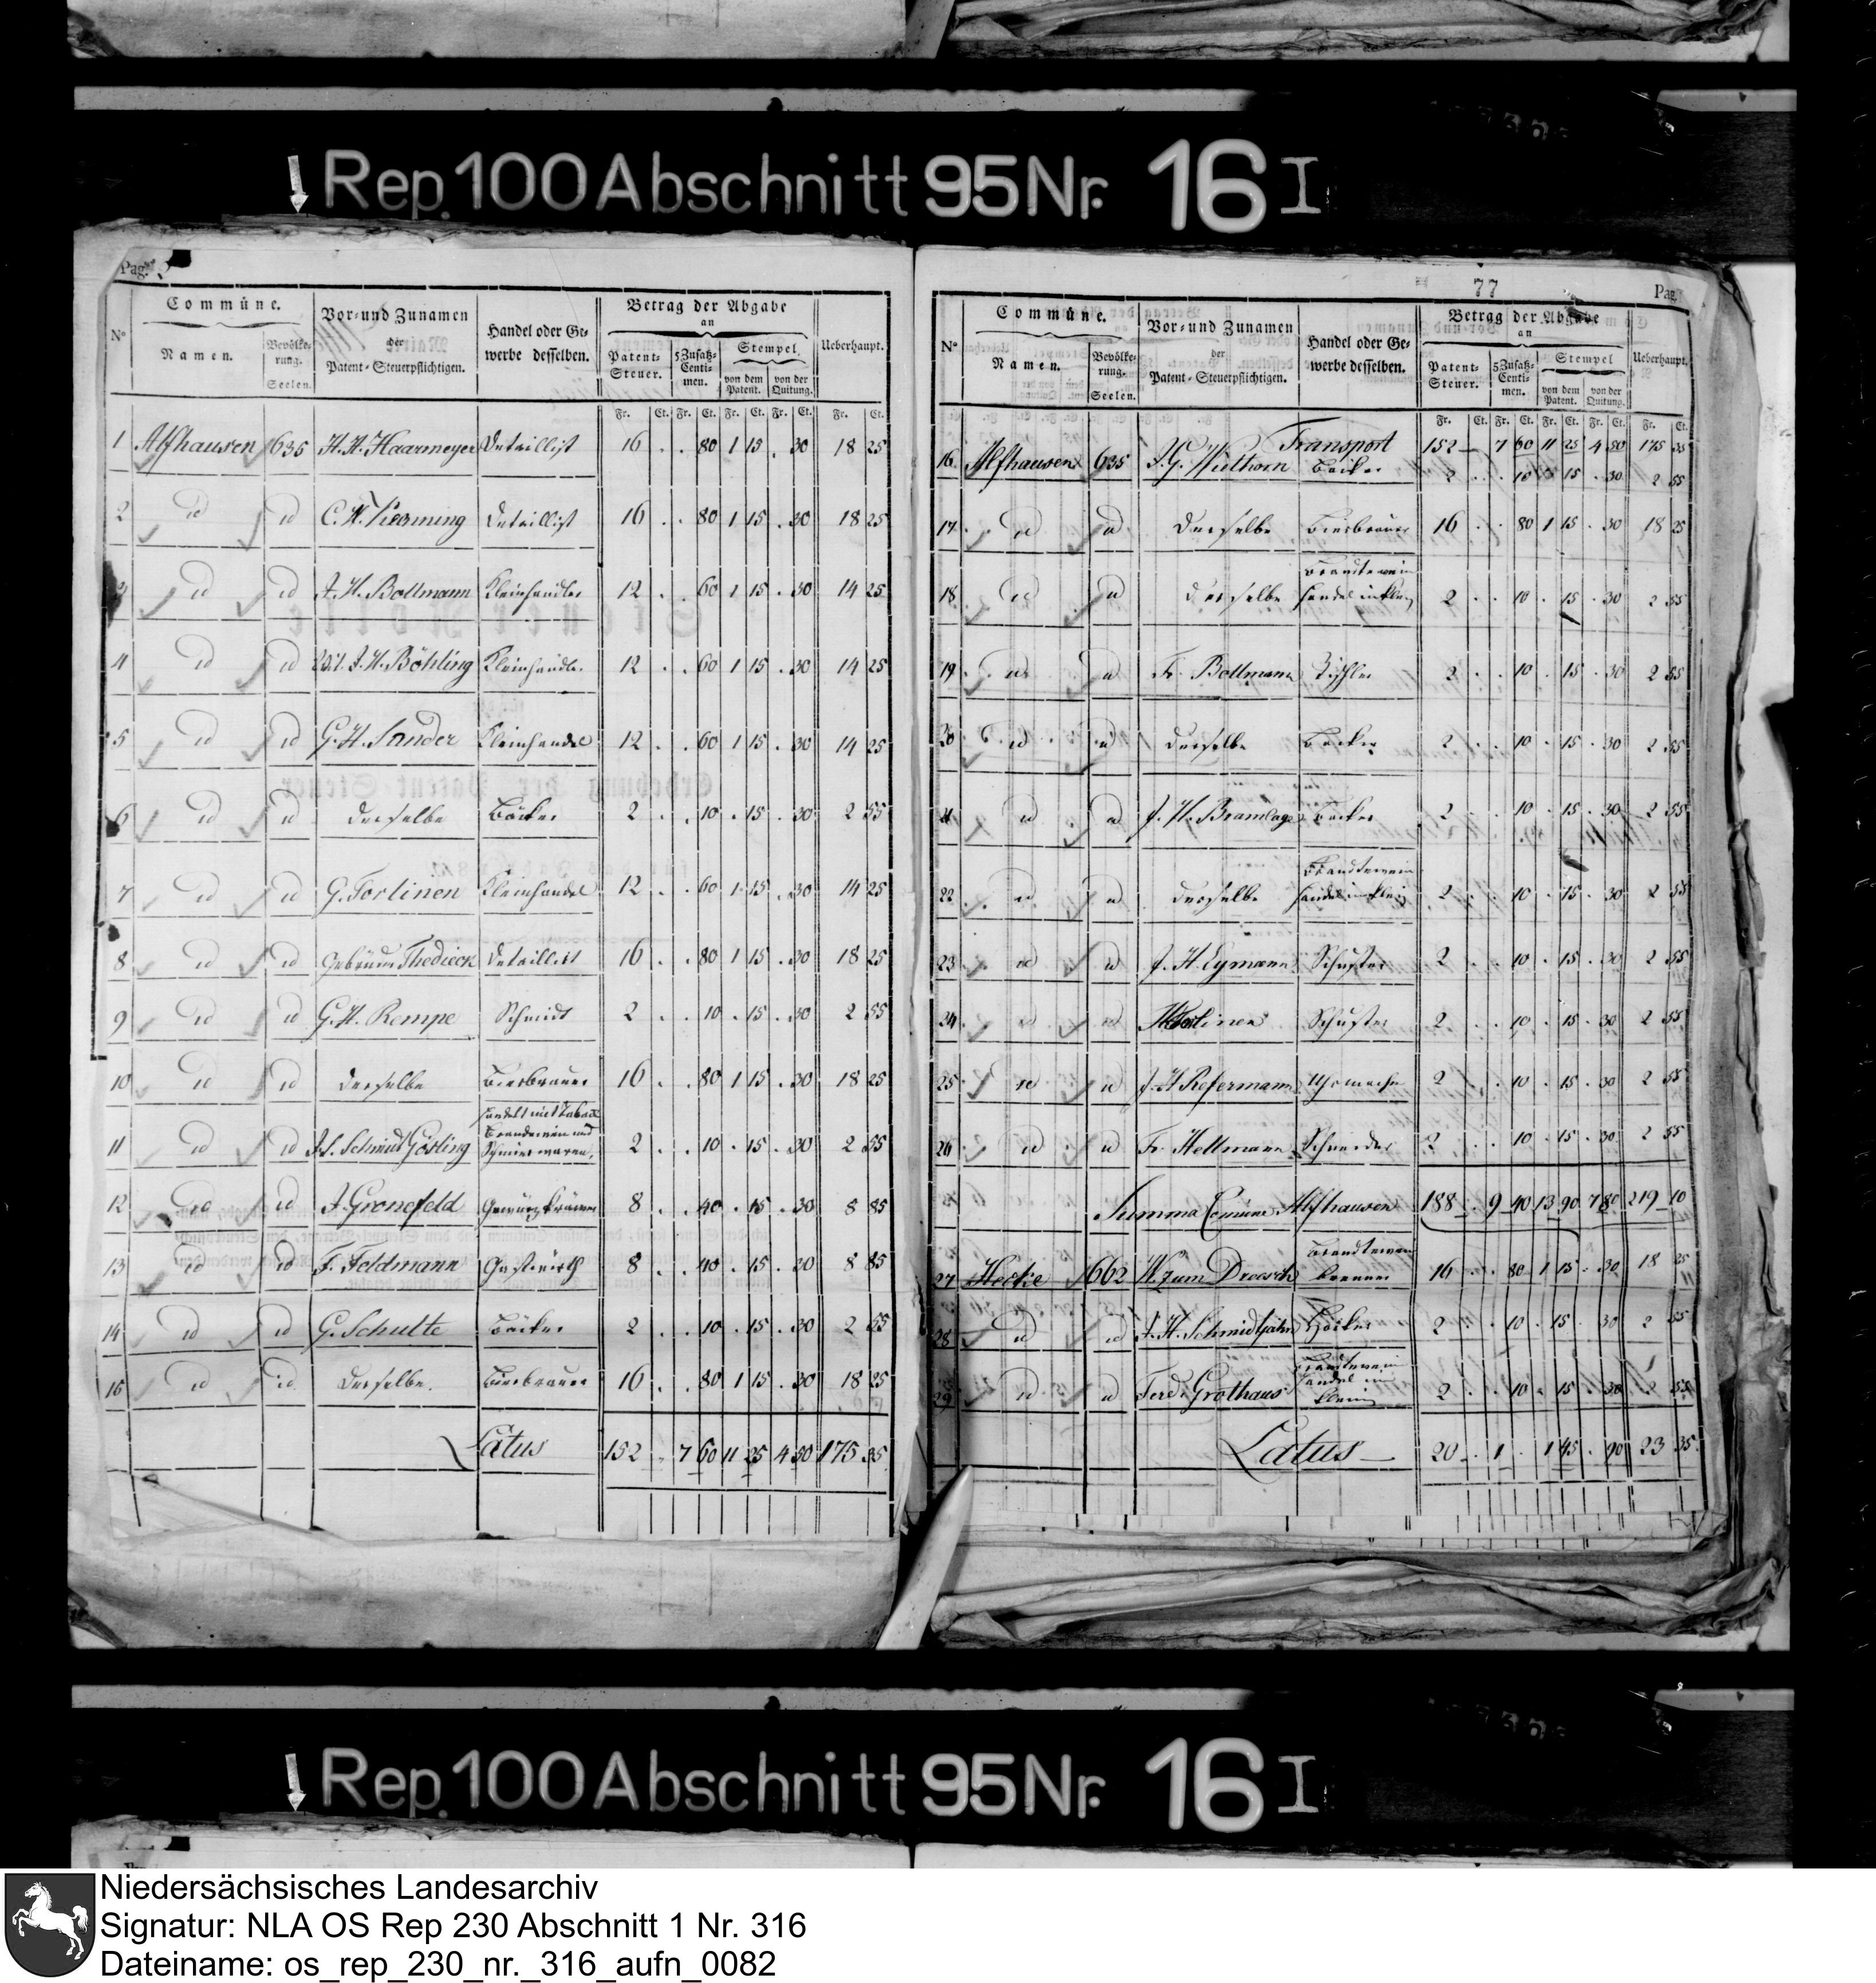 Rep. 100 Abschnitt 95 Nr. 16 I
Pag. 2
N° Commüne. Namen. Bevölkerung. Seelen. Vor- und Zunamen der Patent-Steuerpflichtigen. Handel oder Gewerbe desselben. Betrag der Abgabe an Patent-Steuer. 5 Zusatz-Centimen. Stempel von dem Patent. von der Quitung. Ueberhaupt.
Fr. Ct. Fr. Ct. Fr. Ct. Fr. Ct. Fr. Ct.
1 Alfhausen 635 H. H. Haarmeyer Detaillist 16 . . 80 1 15 . 30 18 25
2 id id C. H. Detaillist 16 . . 80 1 15 . 30 18 25
3 id id J. H. Bollmann Kleinhändler 12 . . 60 1 15 . 30 14 25
4 id id Wit. J. H. Böhling Kleinhändler 12 . . 60 1 15 . 30 14 25
5 id id G. H. Sander Kleinhandel 12 . . 60 1 15 . 30 14 25
6 id id Derselbe Bäcker 2 . . 10 . 15 . 30 2 55
7 id id G. Torlinen Kleinhandel 12 . . 60 1 15 . 30 14 25
8 id id Gebrüder Thedieck Detaillist 16 . . 80 1 15 . 30 18 25
9 id id G. H. Rempe Schmidt 2 . . 10 . 15 . 30 2 55
10 id id Derselbe Bierbrauer 16 . . 80 1 15 . 30 18 25
handelt mit Taback
Brandewein und
11 id id Schmidt Gösling 2 . . 10 . 15 . 30 2 55
12 id id J. Gronefeld Gewürzkrämer 8 . . 40 . 15 . 30 8 85
13 id id F. Feldmann Gastwirth 8 . . 40 . 15 . 30 8 85
14 id id G. Schulte Bäcker 2 . . 10 . 15 . 30 2 55
15 id id Derselbe. Bierbrauer 16 . . 80 1 15 . 30 18 25
Latus 152 . 7 60 11 25 4 50 175 35
77 Pag
N° Commüne. Namen. Bevölkerung. Seelen. Vor- und Zunamen der Patent-Steuerpflichtigen. Handel oder Gewerbe desselben. Betrag der Abgabe an Patent-Steuer. 5 Zusatz-Centimen. Stempel von dem Patent. von der Quitung. Ueberhaupt.
Fr. Ct. Fr. Ct. Fr. Ct. Fr. Ct. Fr. Ct.
Transport 152 7 60 11 25 4 50 175 35
16 Alfhausen 635 J. G. Wielhorn Bäcker 2 . . 10 . 15 . 30 2 55
17 id id Derselbe Bierbrauer 16 . . 80 1 15 . 30 18 25
Brandtewein
18 id id Derselbe handel im Klein 2 . . 10 . 15 . 30 2 55
19 id id Fr. Bollmann Tischler 2 . . 10 . 15 . 30 2 55
20 id id Derselbe Bäcker 2 . . 10 . 15 . 30 2 55
21 id id J. H. Bramlage Bäcker 2 . . 10 . 15 . 30 2 55
Brandtewein
22 id id Derselbe handel im Klein 2 . . 10 . 15 . 30 2 55
23 id id J. H. Eymann Schuster 2 . . 10 . 15 . 30 2 55
24 id id Schuster 2 . . 10 . 15 . 30 2 55
25 id id J. H. Refermann Uhrmacher 2 . . 10 . 15 . 30 2 55
26 id id Fr. Heltmann Schneider 2 . . 10 . 15 . 30 2 55
Summa Comüne Alfhausen 188 . 9 40 13 90 7 80 219 10
Brandtewein
27 Hecke 662 W. zum Dreesch brenner 16 . . 80 1 15 . 30 18 25
28 id id J. H. Schmidtjahn Höcker 2 . . 10 . 15 . 30 2 55
Brandtewein
handel im
29 id id Ferd. Grothaus Klein 2 . . 10 . 15 . 30 2 55
Latus 20 . 1 . 1 45 . 90 23 35
Rep. 100 Abschnitt 95 Nr. 16 I
Niedersächsisches Landesarchiv
Signatur: NLA OS Rep 230 Abschnitt 1 Nr. 316
Dateiname: os_rep_230_nr._316_aufn_0082